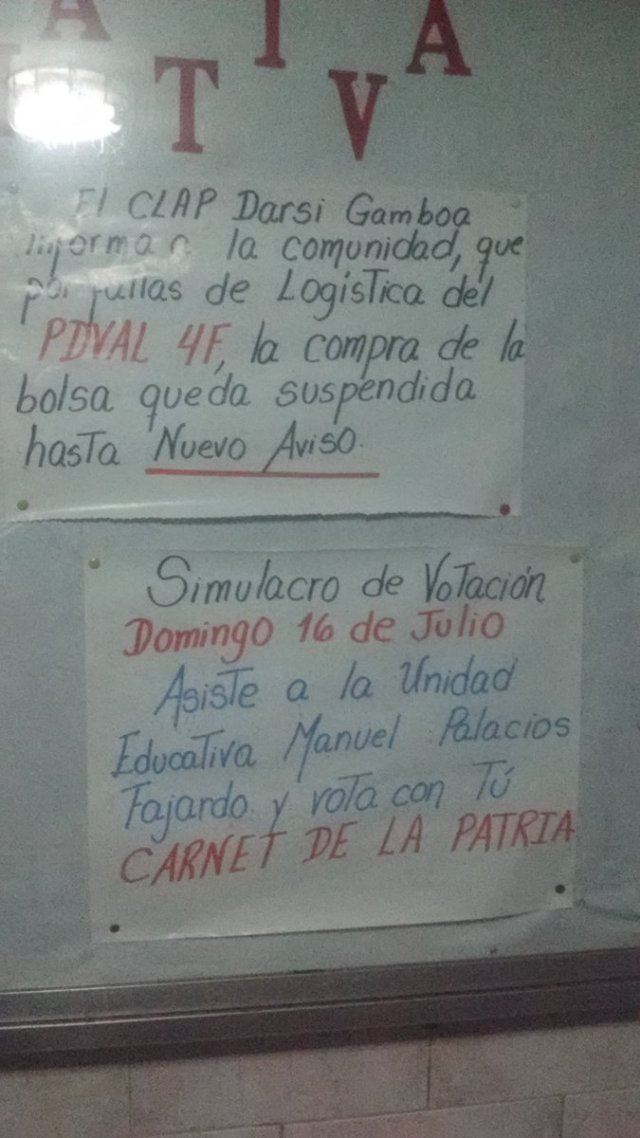 A I A
T V
El CLAP Darsi Gamboa
informa a la comunidad, que
por fallas de Logística del
PDVAL 4F, la compra de la
bolsa queda suspendida
hasta Nuevo Aviso.
Simulacro de Votación
Domingo 16 de Julio
Asiste a la Unidad
Educativa Manuel Palacios
Fajardo y vota con Tú
CARNET DE LA PATRIA